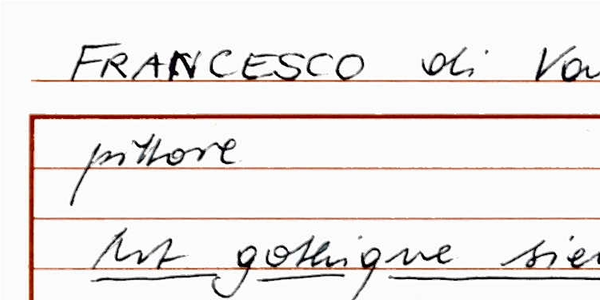 FRANCESCO di Va
pittore
Art gothique sien